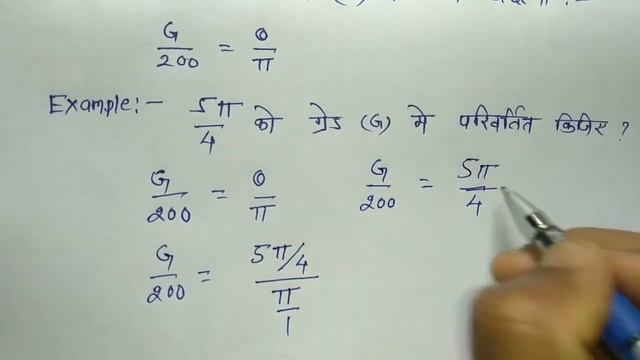 (
G/200 = θ/π
Example:- 5π/4 को ग्रेड (G) मे परिवर्तित किजिए ?
G/200 = θ/π
G/200 = 5π/4
G/200 = 5π/4 / π/1